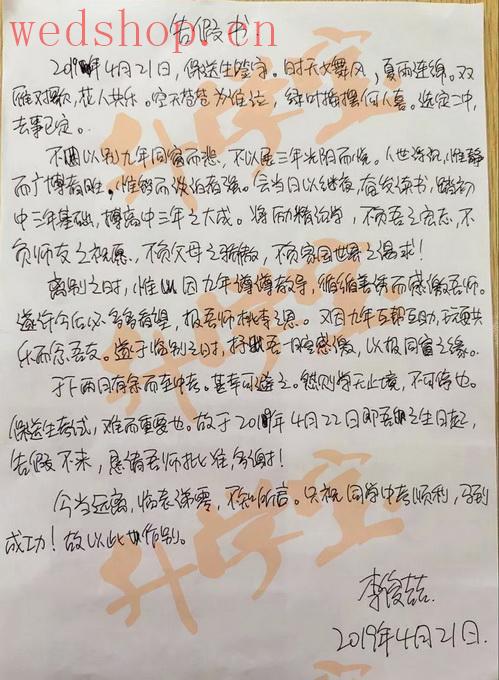 wedshop.cn
告假书
2019年4月21日，保送生签字。时天水舞风，夏雨连绵。双
雁对歌，花人共乐。空天苍苍为谁泣，绿叶摇摆何人喜。选定二中，
去事已定。
不因以别九年同窗而悲，不以展三年光阴而悦。人世浮沉，惟静
而广博者胜，惟躬而淡泊者强。会当日以继夜，奋发读书，踏初
中三年基础，搏高中三年之大成。将励精治学，不负吾之宏志，不
负师友之祝愿，不负父母之骄傲，不负家国世界之渴求！
离别之时，惟以因九年谆谆教导，循循善诱而感激吾师。
遂许今后必多多看望，报吾师桃李之恩。又因九年互帮互助，玩耍共
乐而念吾友。遂于临别之时，抒吾一腔感激，以报同窗之缘。
于下两月有余而至中考。甚幸可避之。然则学无止境，不可停也。
保送生考试，难而重要也。故于2019年4月22日即吾之生日起，
告假不来，恳请吾师批准，多谢！
今当远离，临表涕零，不知所言。只祝同学中考顺利，马到
成功！故以此作别。
李俊喆
2019年4月21日.
升学宝
升学宝
升学宝